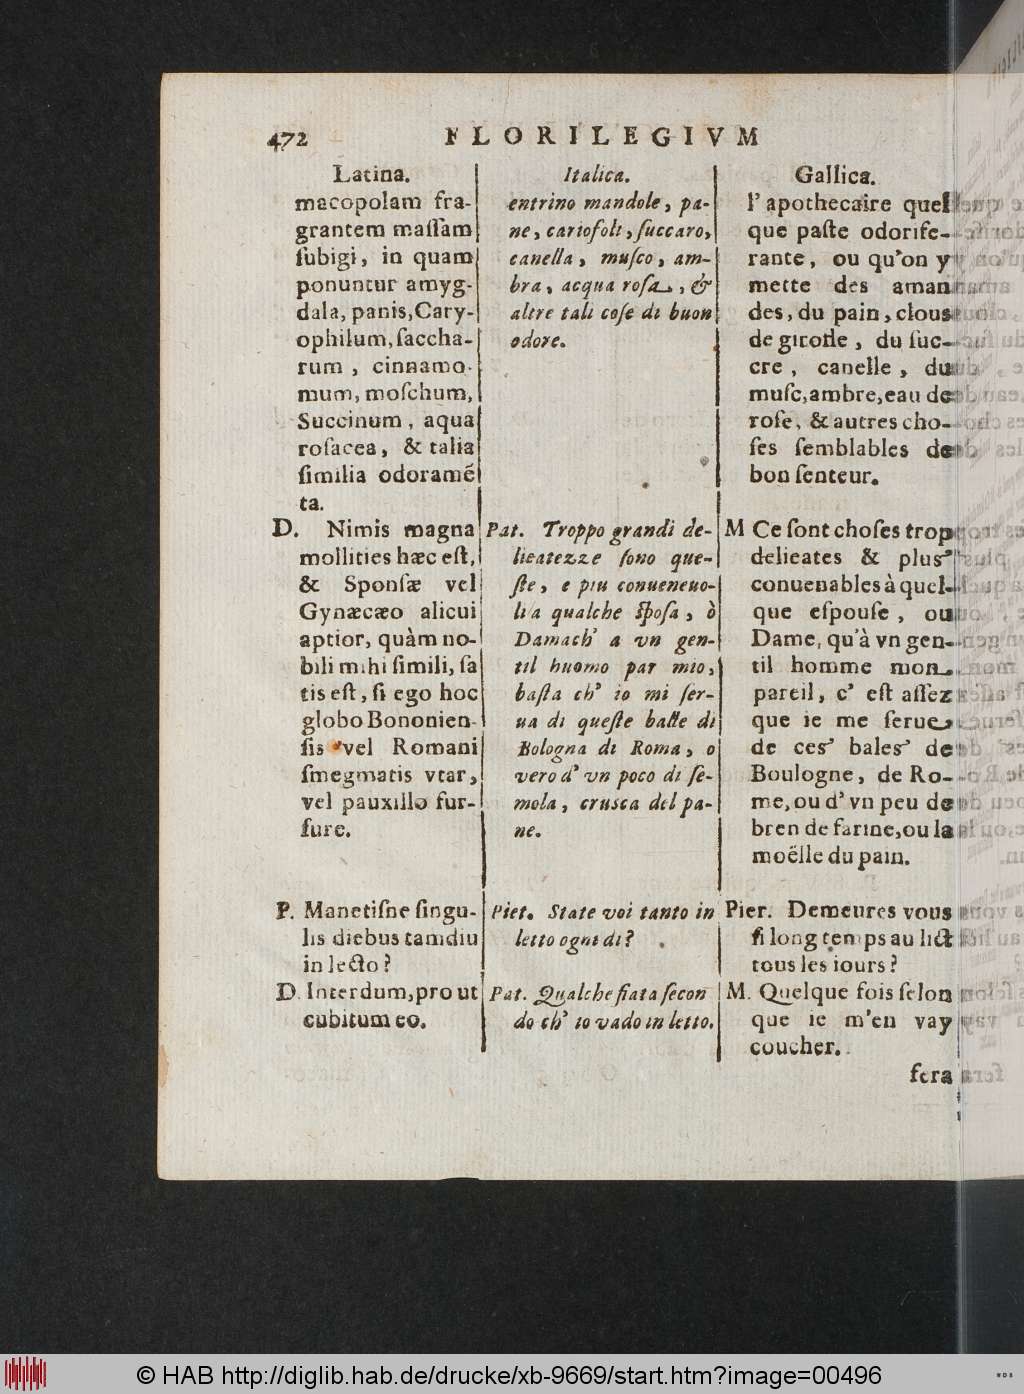 472 FLORILEGIVM
Latina.
macopolam fra-
grantem maſſam
ſubigi, in quam
ponuntur amyg-
dala, panis, Cary-
ophilum, ſaccha-
rum, cinnamo-
mum, moſchum,
Succinum, aqua
roſacea, & talia
ſimilia odoramẽ
ta.
D. Nimis magna
mollities hæc eſt,
& Sponſæ vel
Gynæcæo alicui
aptior, quàm no-
bili mihi ſimili, ſa
tis eſt, ſi ego hoc
globo Bononien-
ſis vel Romani
ſmegmatis vtar,
vel pauxillo fur-
fure.
P. Manetiſne ſingu-
lis diebus tamdiu
in lecto?
D. Interdum, prout
cubitum eo.
Italica.
entrino mandole, pa-
ne, cariofoli, ſuccaro,
canella, muſco, am-
bra, acqua roſa, &
altre tali coſe di buon
odore.
Pat. Troppo grandi de-
licatezze ſono que-
ſte, e piu conueneuo-
li a qualche ſpoſa, ò
Damach' a vn gen-
til huomo par mio,
baſta ch' io mi ſer-
ua di queſte balle di
Bologna di Roma, o
vero d' vn poco di ſe-
mola, crusca del pa-
ne.
Piet. State voi tanto in
letto ogni di?
Pat. Qualche fiata ſecon
do ch' io vado in letto.
Gallica.
l'apothecaire quel
que paſte odorife-
rante, ou qu'on y
mette des aman
des, du pain, clous
de girofle, du ſuc-
cre, canelle, du
muſc, ambre, eau de
roſe, & autres cho-
ſes ſemblables de
bon ſenteur.
M Ce ſont choſes trop
delicates & plus
conuenables à quel-
que eſpouſe, ou
Dame, qu'à vn gen-
til homme mon
pareil, c' eſt aſſez
que ie me ſerue
de ces bales de
Boulogne, de Ro-
me, ou d' vn peu de
bren de farine, ou la
moëlle du pain.
Pier. Demeures vous
ſi long temps au lict
tous les iours?
M. Quelque fois ſelon
que ie m'en vay
coucher.
fera
© HAB http://diglib.hab.de/drucke/xb-9669/start.htm?image=00496